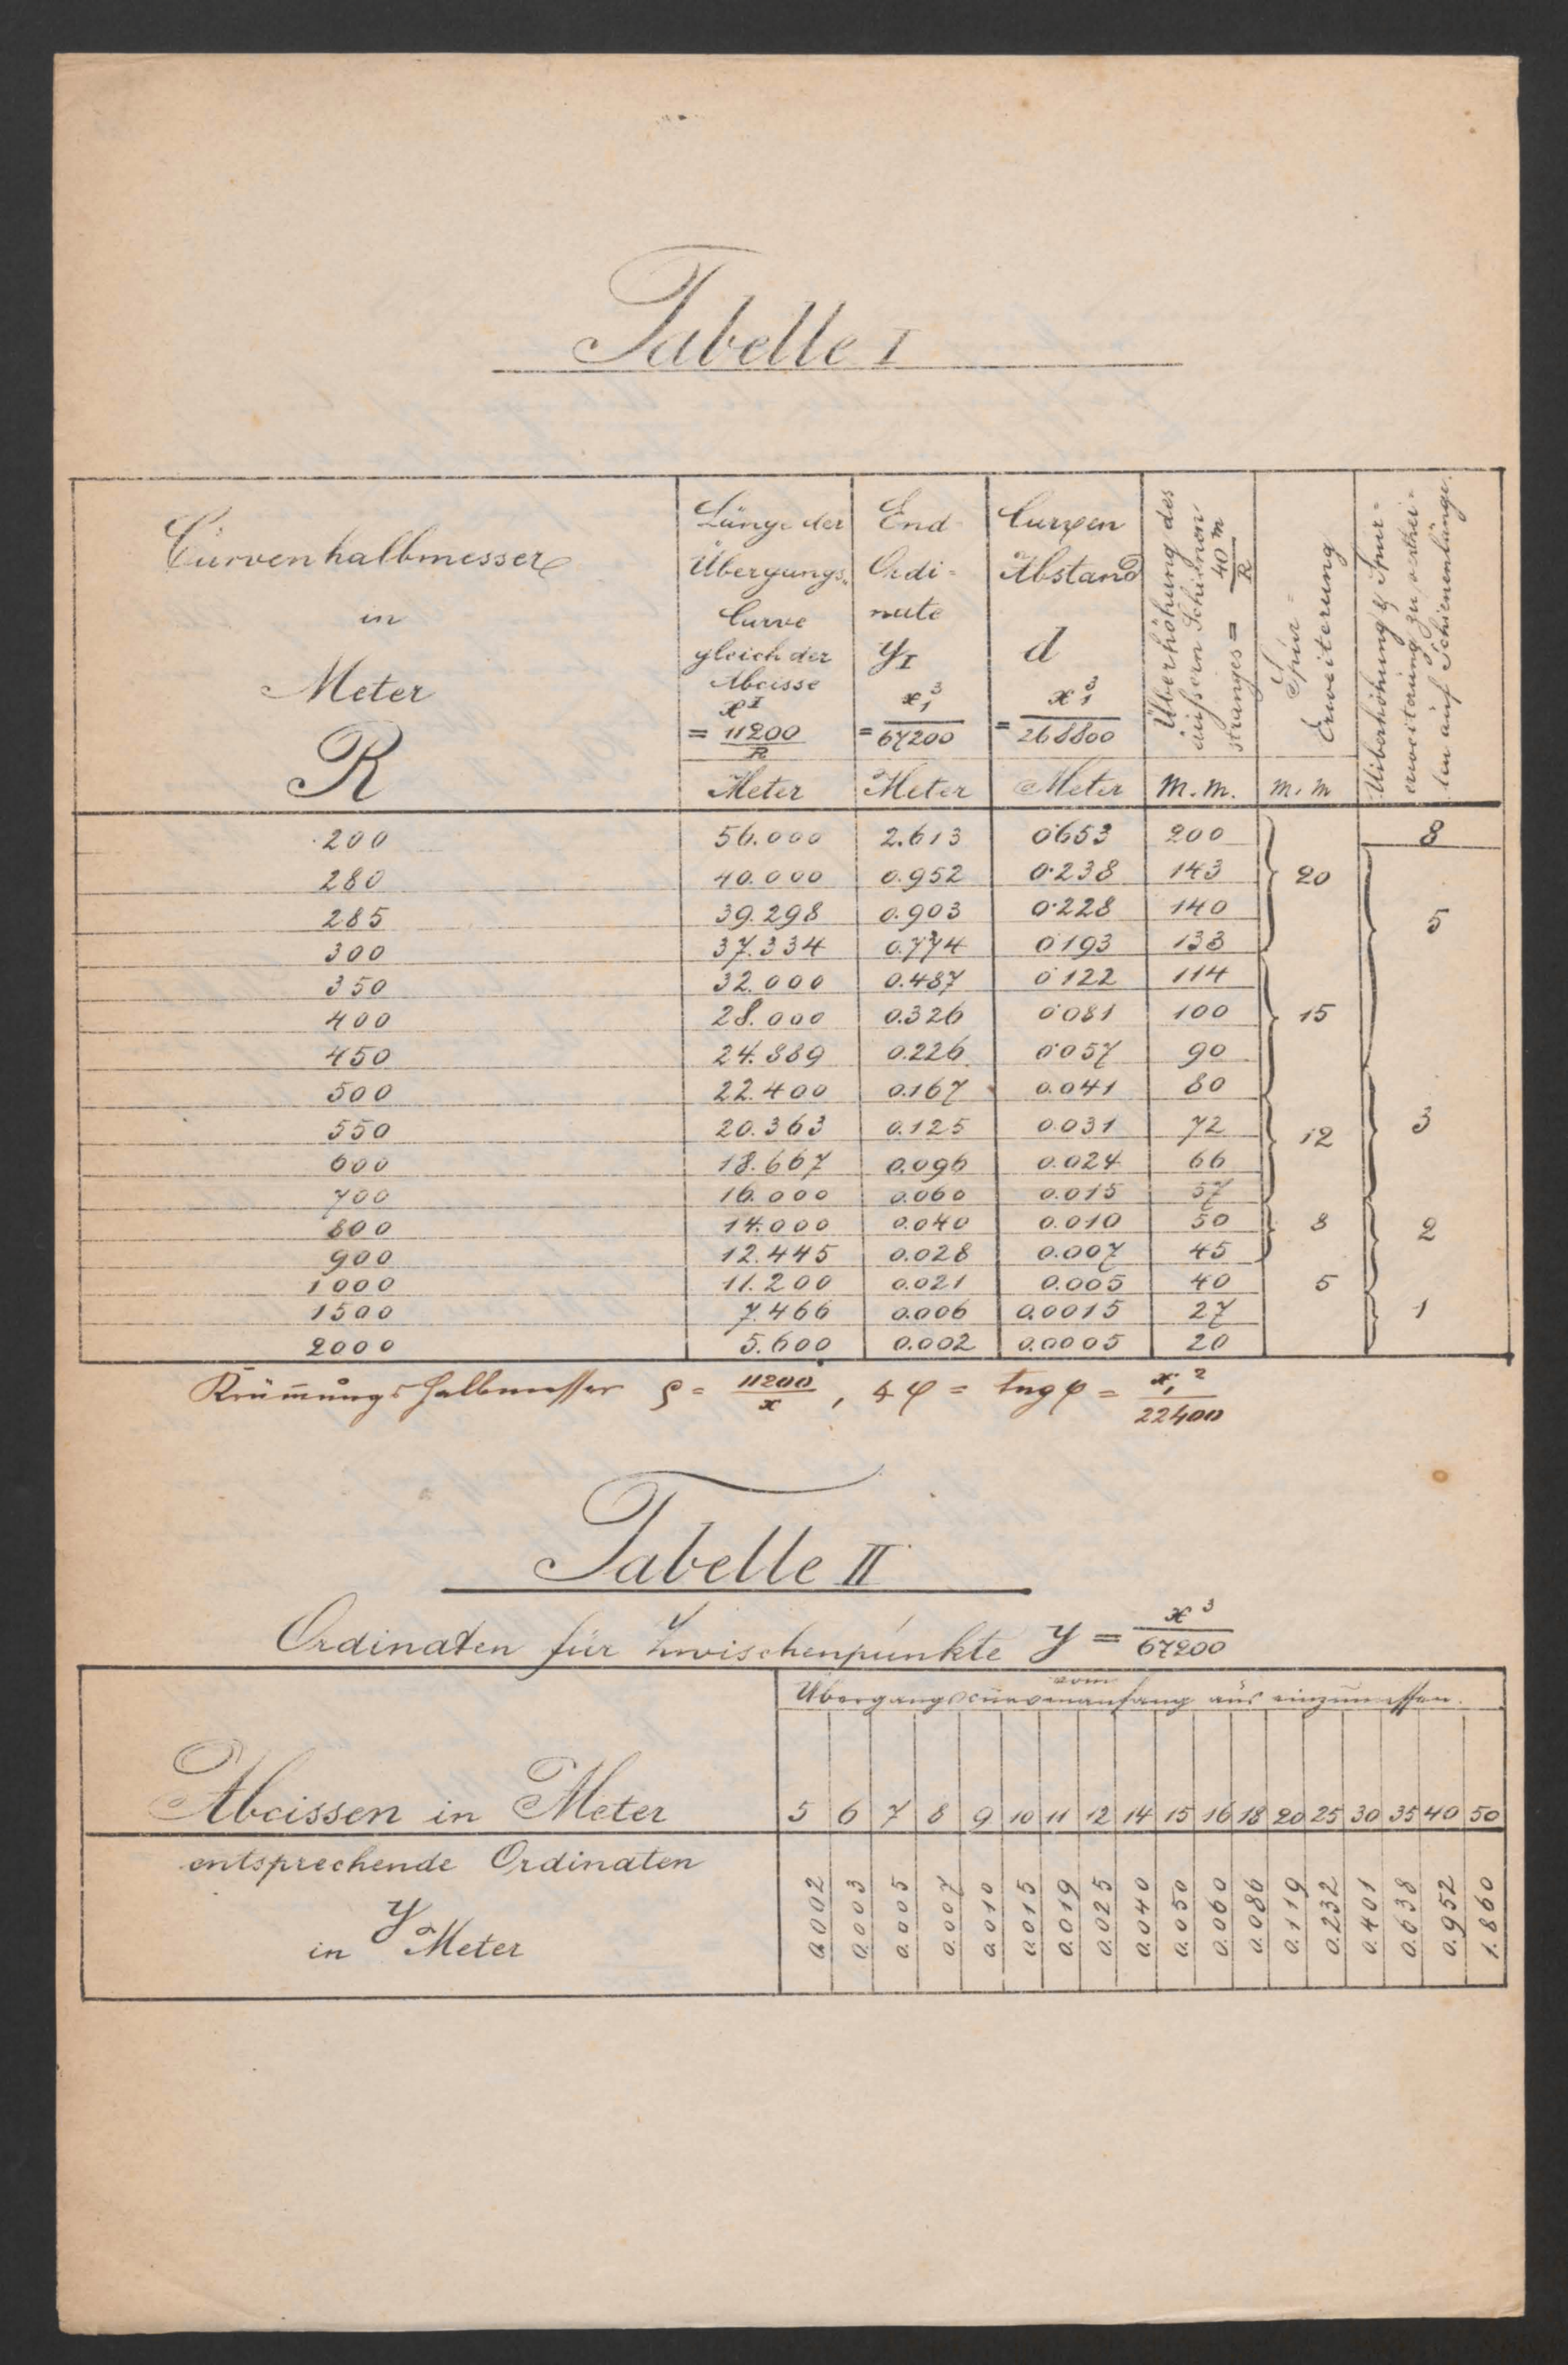 Tabelle I
Curvenhalbmesser
in
Meter
R
Länge der
Übergangs-
Curve
gleich der
Abcisse
x I
= 11200 / R
Meter
End
Ordi-
nate
y I
= x₁³ / 67200
Meter
Curven
Abstand
d
= x₁³ / 268800
Meter
Überhöhung des
äußern Schienen
stranges = 40 m / R
m.m.
Spur-
Erweiterung
m.m
Uiberhöhung & Spur-
erweiterung zu verthei-
len auf Schienenlänge.
200 56.000 2.613 0.653 200 8
280 40.000 0.952 0.238 143 20
285 39.298 0.903 0.228 140 5
300 37.334 0.774 0.193 133
350 32.000 0.487 0.122 114
400 28.000 0.326 0.081 100 15
450 24.889 0.226 0.057 90
500 22.400 0.167 0.041 80
550 20.363 0.125 0.031 72 12 3
600 18.667 0.096 0.024 66
700 16.000 0.060 0.015 57
800 14.000 0.040 0.010 50 8 2
900 12.445 0.028 0.007 45
1000 11.200 0.021 0.005 40 5
1500 7.466 0.006 0.0015 27 1
2000 5.600 0.002 0.0005 20
Krümmungshalbmesser ρ = 11200 / x , ∢ φ = tng φ = x₁² / 22400
Tabelle II
Ordinaten für Zwischenpunkte y = x³ / 67200
vom
Übergangscurvenanfang aus einzumessen.
Abcissen in Meter 5 6 7 8 9 10 11 12 14 15 16 18 20 25 30 35 40 50
entsprechende Ordinaten
y
in Meter
0.002 0.003 0.005 0.007 0.010 0.015 0.019 0.025 0.040 0.050 0.060 0.086 0.119 0.232 0.401 0.638 0.952 1.860